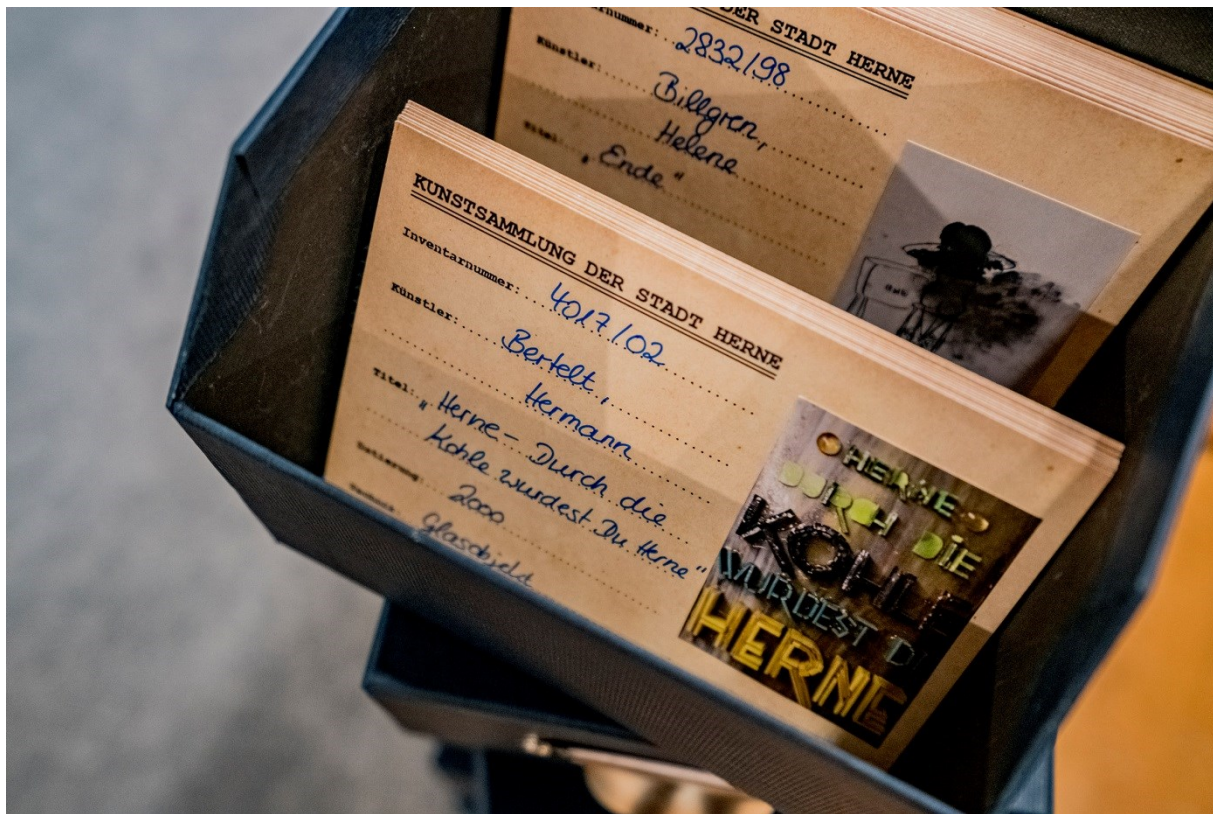 DER STADT HERNE
nummer: 2832/98
Künstler: Billgren,
Helene
Titel: „Ende“
KUNSTSAMMLUNG DER STADT HERNE
Inventarnummer: 4017/02
Künstler: Bertelt,
Hermann
Titel: „Herne – Durch die
Kohle wurdest Du Herne“
Datierung: 2000
Technik: Glasobjekt
HERNE
DURCH DIE
KOHLE
WURDEST D
HERNE